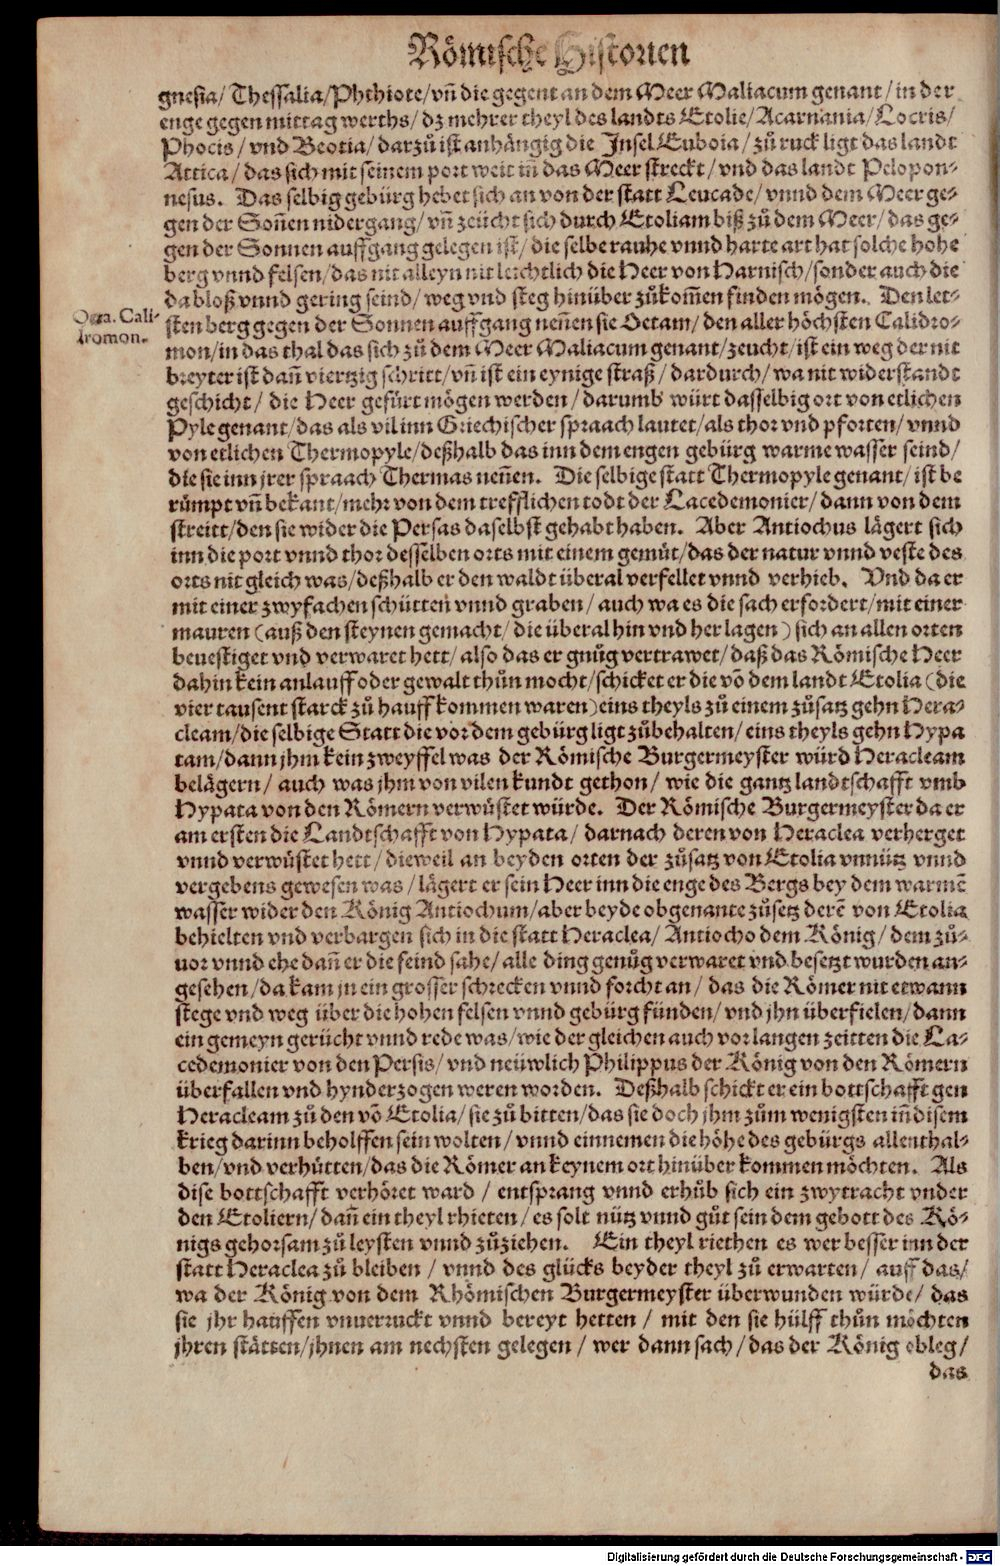 Römische Historien
gnesia/ Thessalia/ Phthiote/ vñ die gegent an dem Meer Maliacum genant/ in der
enge gegen mittag werths/ dz mehrer theyl des landts Etolie/ Acarnania/ Locris/
Phocis/ vnd Beotia/ darzů ist anhängig die Jnsel Euboia/ zů ruck ligt das landt
Attica/ das sich mit seinem port weit iñ das Meer streckt/ vnd das landt Pelopon-
nesus. Das selbig gebürg hebet sich an von der statt Leucade/ vnnd dem Meer ge-
gen der Soñen nidergang/ vñ zeücht sich durch Etoliam biß zů dem Meer/ das ge-
gen der Sonnen auffgang gelegen ist/ die selbe rauhe vnnd harte art hat solche hohe
berg vnnd felsen/ das nit alleyn nit leichtlich die Heer von Harnisch/ sonder auch die
da bloß vnnd gering seind/ weg vnd steg hinüber zůkom̃en finden mögen. Den let-
Oeta. Cali-
dromon.
sten berg gegen der Sonnen auffgang neñen sie Oetam/ den aller höchsten Calidro-
mon/ in das thal das sich zů dem Meer Maliacum genant/ zeucht/ ist ein weg der nit
breyter ist dañ viertzig schritt/ vñ ist ein eynige straß/ dardurch/ wa nit widerstandt
geschicht/ die Heer gefürt mögen werden/ darumb würt dasselbig ort von etlichen
Pyle genant/ das als vil inn Griechischer spraach lautet/ als thor vnd pforten/ vnnd
von etlichen Thermopyle/ deßhalb das inn dem engen gebürg warme wasser seind/
die sie inn jrer spraach Thermas neñen. Die selbige statt Thermopyle genant/ ist be
rümpt vñ bekant/ mehr von dem trefflichen todt der Lacedemonier/ dann von dem
streitt/ den sie wider die Persas daselbst gehabt haben. Aber Antiochus lägert sich
inn die port vnnd thor desselben orts mit einem gemüt/ das der natur vnnd veste des
orts nit gleich was/ deßhalb er den waldt überal verfellet vnnd verhieb. Vnd da er
mit einer zwyfachen schütten vnnd graben/ auch wa es die sach erfordert/ mit einer
mauren (auß den steynen gemacht/ die überal hin vnd her lagen) sich an allen orten
beuestiget vnd verwaret hett/ also das er gnůg vertrawet/ daß das Römische Heer
dahin kein anlauff oder gewalt thůn mocht/ schicket er die võ dem landt Etolia (die
vier tausent starck zů hauff kommen waren) eins theyls zů einem zůsatz gehn Hera-
cleam/ die selbige Statt die vor dem gebürg ligt zůbehalten/ eins theyls gehn Hypa
tam/ dann jhm kein zweyffel was der Römische Burgermeyster würd Heracleam
belägern/ auch was jhm von vilen kundt gethon/ wie die gantz landtschafft vmb
Hypata von den Römern verwüstet würde. Der Römische Burgermeyster da er
am ersten die Landtschafft von Hypata/ darnach deren von Heraclea verherget
vnnd verwüstet hett/ dieweil an beyden orten der zůsatz von Etolia vnnütz vnnd
vergebens gewesen was/ lägert er sein Heer inn die enge des Bergs bey dem warmẽ
wasser wider den König Antiochum/ aber beyde obgenante zůsetz derẽ von Etolia
behielten vnd verbargen sich in die statt Heraclea/ Antiocho dem König/ dem zů-
uor vnnd ehe dañ er die feind sahe/ alle ding genůg verwaret vnd besetzt wurden an-
gesehen/ da kam jn ein grosser schrecken vnnd forcht an/ das die Römer nit etwann
stege vnd weg über die hohen felsen vnnd gebürg fünden/ vnd jhn überfielen/ dann
ein gemeyn gerücht vnnd rede was/ wie der gleichen auch vor langen zeitten die La-
cedemonier von den Persis/ vnd neüwlich Philippus der König von den Römern
überfallen vnd hynderzogen weren worden. Deßhalb schickt er ein bottschafft gen
Heracleam zů den võ Etolia/ sie zů bitten/ das sie doch jhm zům wenigsten iñ disem
krieg darinn beholffen sein wolten/ vnnd einnemen die höhe des gebürgs allenthal-
ben/ vnd verhütten/ das die Römer an keynem ort hinüber kommen möchten. Als
dise bottschafft verhöret ward/ entsprang vnnd erhůb sich ein zwytracht vnder
den Etoliern/ dañ ein theyl rhieten/ es solt nütz vnnd gůt sein dem gebott des Kö-
nigs gehorsam zů leysten vnnd zůziehen. Ein theyl riethen es wer besser inn der
statt Heraclea zů bleiben/ vnnd des glücks beyder theyl zů erwarten/ auff das/
wa der König von dem Rhömischen Burgermeyster überwunden würde/ das
sie jhr hauffen vnuerruckt vnnd bereyt hetten/ mit den sie hülff thůn möchten
jhren stätten/ jhnen am nechsten gelegen/ wer dann sach/ das der König obleg/
das
Digitalisierung gefördert durch die Deutsche Forschungsgemeinschaft - DFG